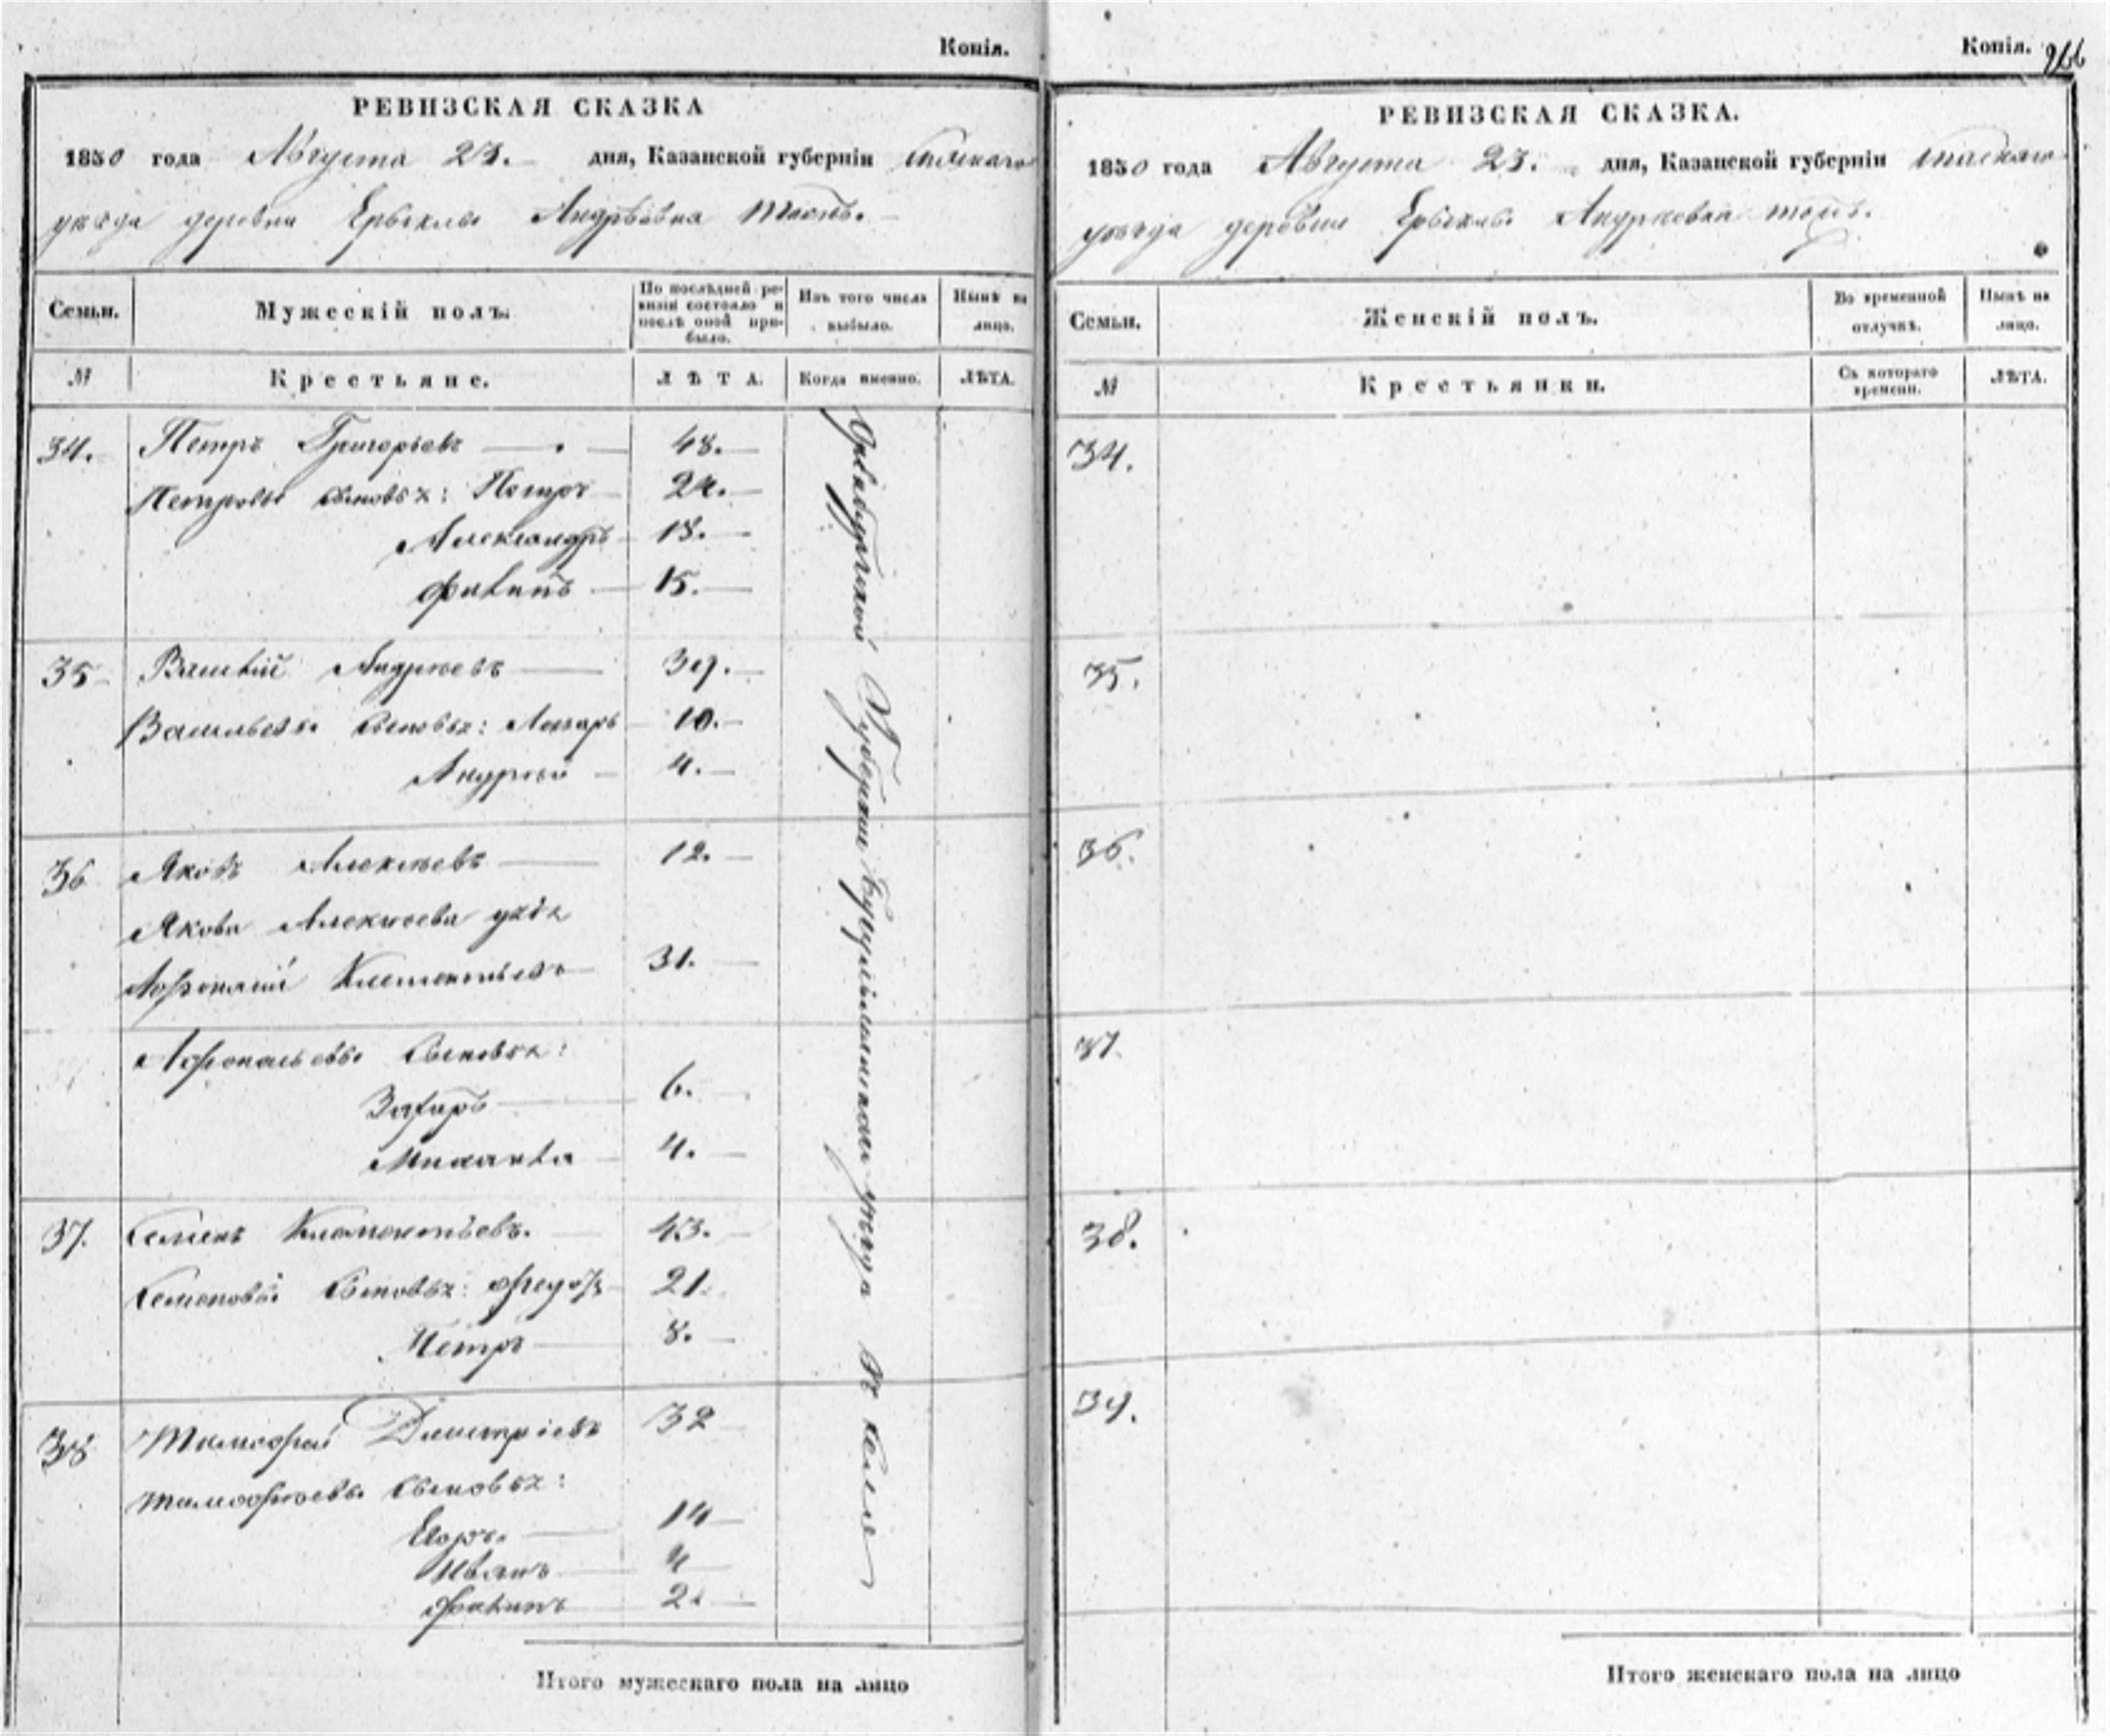 Копія.
РЕВИЗСКАЯ СКАЗКА
1850 года Августа 23. дня, Казанской губерніи Спаскаго
уѣзда деревни Ерыклы Андрѣевка тожъ.
Семьи. Мужескій полъ. По послѣдней ревизіи состояло и послѣ оной прибыло. Изъ того числа выбыло. Нынѣ на лицо.
№ Крестьяне. ЛѢТА. Когда именно. ЛѢТА.
34. Петръ Григорьевъ — 48. —
Петровы сыновья: Петръ 24. —
Александръ 18. —
Филипъ — 15. —
35 Василій Андреевъ — 39. —
Васильевы сыновья: Лазарь 10. —
Андрей — 4. —
36 Яковъ Алексѣевъ — 12. —
Якова Алексѣева дядя
Афонасій Клементьевъ 31. —
Афонасьевы сыновья:
Захаръ — 6. —
Михаила — 4. —
37. Семенъ Клементьевъ. — 43. —
Семеновы сыновья: Федоръ 21.
Петръ — 8. —
38 Тимофей Димитріевъ 32
Тимофѣевы сыновья:
Егоръ. — 14
Иванъ — 4
Филипъ 2. —
Оренбургской Губерніи Бугульминскаго уѣзда
Итого мужескаго пола на лицо
Копія. 966
РЕВИЗСКАЯ СКАЗКА.
1850 года Августа 23. дня, Казанской губерніи Спаскаго
уѣзда деревни Ерыклы Андреевка тожъ.
Семьи. Женскій полъ. Во временной отлучкѣ. Нынѣ на лицо.
№ Крестьянки. Съ котораго времени. ЛѢТА.
34.
35.
36.
37
38.
39.
Итого женскаго пола на лицо